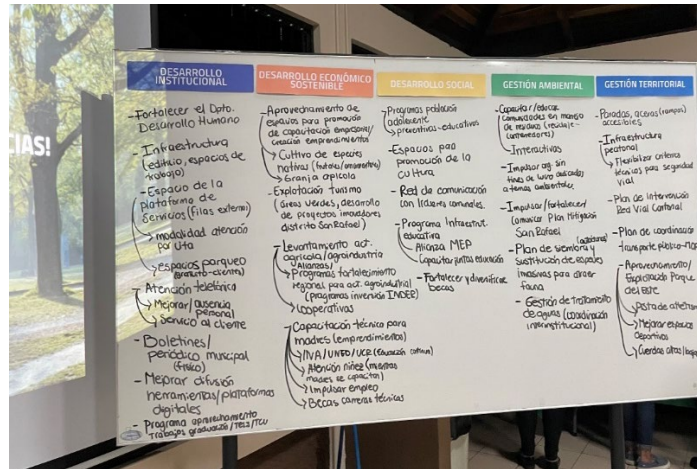 CIAS!
DESARROLLO
INSTITUCIONAL
-Fortalecer el Dpto.
Desarrollo Humano
- Infraestructura
(edificio, espacios de
trabajo)
-Espacio de la
plataforma de
Servicios (filas externi)
modalidad atención
por cita
espacios parqueo
- Atención telefónica
Mejorar/ausencia
personal
Servicio al cliente
- Boletines/
periódico municipal
(físico)
- Mejorar difusión
herramientas/plataformas
digitales
- Programa aprovechamiento
Trabajos graduación/
DESARROLLO ECONÓMICO
SOSTENIBLE
-Aprovechamiento de
espacios para promoción
de capacitación empresarial/
creación emprendimientos
Cultivo de especies
nativas (frutales/ornamentales)
Granja apícola
-Explotación turismo
(áreas verdes, desarrollo
de proyectos innovadores
distrito San Rafael)
-Levantamiento act.
agrícola/agroindustria
Alianzas/
Programas fortalecimiento
regional para act. agroindustrial
(programas inversión INDER)
Cooperativas
-Capacitación técnica para
madres (emprendimientos)
INA/UNED/UCR (Educación continua)
Atención niñez (mientras
madres se capacitan)
Impulsar empleo
Becas carreras técnicas
DESARROLLO SOCIAL
-Programas población
adolescente
preventivos-educativos
-Espacios para
promoción de la
cultura
- Red de comunicación
con líderes comunales.
-Programa Infraestruct.
educativa
Alianza MEP
Capacitar juntas educación
-Fortalecer y diversificar
becas
GESTIÓN AMBIENTAL
-Capacitar/educar
comunidades en manejo
de residuos (reciclaje-
contenedores)
Interactivas
-Impulsar org. sin
fines de lucro
a temas ambientales
-Impulsar/fortalecer/
comunicar Plan Mitigación
San Rafael
-Plan de siembra y
sustitución de especies
invasivas para atraer
fauna
- Gestión de tratamiento
de aguas (coordinación
interinstitucional)
GESTIÓN TERRITORIAL
-Paradas, aceras (rampas)
accesibles
-Infraestructura
peatonal
Flexibilizar criterios
técnicos para seguridad
vial
-Plan de intervención
Red Vial Cantonal
-Plan de coordinación
transporte público-
-Aprovechamiento/
Explotación Parque
del Este
Pista de
Mejorar espacios
deportivos
Cuerdas altas/